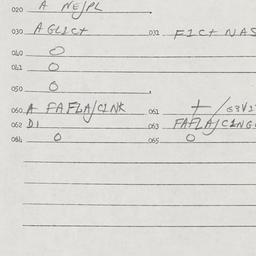 020 A NEJPL
030 A GLICT 031 FICT NAS
040 0
041 0
050 0
060 A FAFLA/CINK 061 + /G3V1
062 DI 063 FAFLA/CING
064 0 065 0